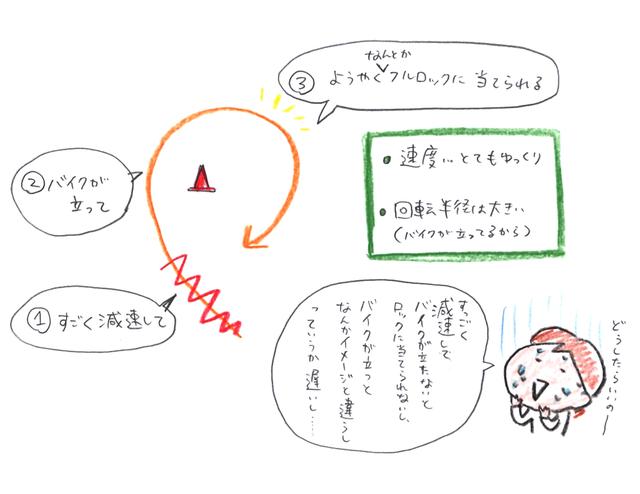 ③ ようやくなんとかフルロックに当てられる
② バイクが
立って
① すごく減速して
● 速度…とてもゆっくり
● 回転半径は大きい
(バイクが立ってるから)
すっごく
減速して
バイクが立たないと
ロックに当てられないし、
バイクが立つと
なんかイメージと違うし
っていうか遅いし……
どうしたらいいのー